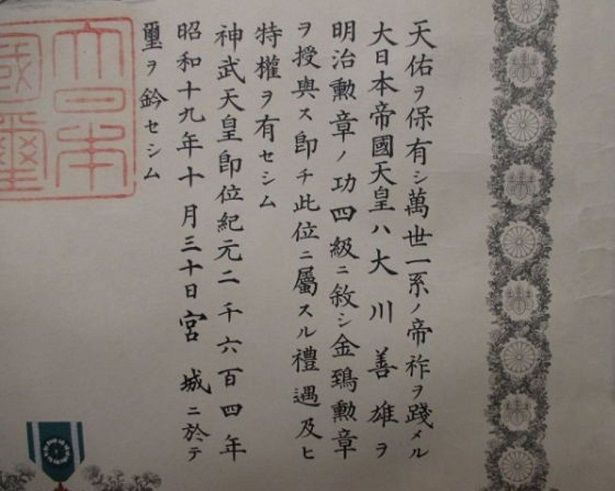 天佑ヲ保有シ萬世一系ノ帝祚ヲ踐メル
大日本帝國天皇ハ大川善雄ヲ
明治勲章ノ功四級ニ敘シ金鵄勲章
ヲ授與ス即チ此位ニ屬スル禮遇及ヒ
特權ヲ有セシム
神武天皇即位紀元二千六百四年
昭和十九年十月三十日宮城ニ於テ
璽ヲ鈐セシム
大日本
國璽